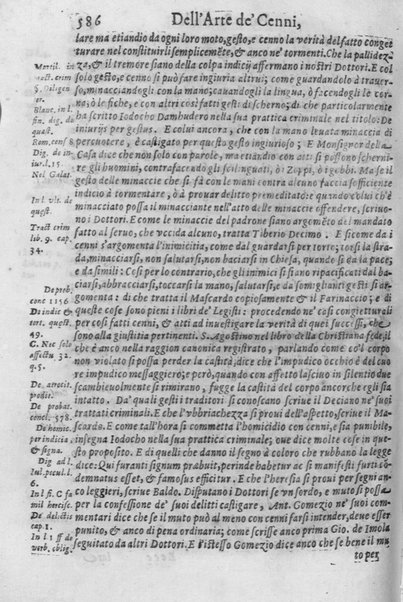 586
Dell'Arte de' Cenni,
lare ma etiandio da ogni loro moto, gesto, e cenno la verità del fatto conget
turare nel constituirli semplicemẽte, & anco ne' tormenti. Che la pallidez
za, & il tremore siano della colpa indicij affermano i nostri Dottori. E col
solo gesto, e cenno si può fare ingiuria altrui; come guardandolo à trauer-
so, minacciandolo con la mano; cauandogli la lingua, ò facendogli le cor-
na, ò le fiche, e con altri così fatti gesti di scherno; di che particolarmente
hà scritto Iodocho Dambudero nella sua prattica criminale nel titolo: De
iniurijs per gestus. E colui ancora, che con la mano leuata minaccia di
percuotere, è castigato per questo gesto ingiurioso; E Monsignor della
Casa dice che non solo con parole, ma etiandio con atti si possono scherni-
re gli huomini, contrafacendo gli scilinguati, ò i Zoppi, ò i gobbi. Ma se il
gesto delle minaccie che si fà con le mani contra alcuno faccia sofficiente
indicio à tormentare, ò à prouar delitto premeditato: e quando colui ch'è
minacciato possa il minacciante nell'atto delle minaccie offendere, scriuo-
no i Dottori. E come le minaccie del padrone siano argomẽto del manda-
to fatto al seruo, che vccida alcuno, tratta Tiberio Decimo. E si come da i
cenni s'argomenta l'inimicitia, come dal guardarsi per torto; torsi la stra-
da, minacciarsi, non salutarsi, non baciarsi in Chiesa, quando si dà la pace;
e da simili: Così per lo contrario, che gli inimici si siano ripacificati dal ba-
ciarsi, abbracciarsi, toccarsi la mano, salutarsi, e da somigliãti segni si ar-
gomenta: di che tratta il Mascardo copiosamente & il Farinaccio; e di
queste cose sono pieni i libri de' Legisti: procedendo ne' casi congietturali
per così fatti cenni, & atti ad inuestigare la verità di quei successi, che
sono alla giustitia pertinenti. S. Agostino nel libro della Christiana fede, il
che è anco nella raggion canonica registrato, parlando come col corpo
non violato si possa perder la castità, dice che l'impudico occhio è del cuo
re impudico messaggiero; però, quando con affetto lasciuo in silentio due
scambieuolmente si rimirano, fugge la castità del corpo ancorche egli sia
intatto. Da' quali gesti i traditori si conoscano scriue il Deciano ne' suoi
trattati criminali. E che l'vbbriachezza si proui dell'aspetto, scriue il Ma-
scardo. E come tall'hora si commetta l'homicidio con cenni, e sia punibile,
insegna Iodocho nella sua prattica criminale; oue dice molte cose in que-
sto proposito. E di quelli che danno il segno à coloro che rubbano la legge
dice: Qui furanti signum prabuit, perinde habetur ac si manifesti furti cõ-
demnatus esset, & famosus efficitur. E che l'heresia si proui per segni an-
co leggieri, scriue Baldo. Disputano i Dottori se vn sordo, e muto si possa
per la confessione de' suoi delitti castigare, Ant. Gomezio ne' suoi com-
mentari dice che se il muto può al meno con cenni farsi intender, deue esser
punito, & anco di pena ordinaria; come scriffe anco prima Gio. de Imola
seguitato da altri Dottori. E l'istesso Gomezio dice anco che se bene il mu
to per
Martil. in
Tract crim
§ Diligens
Blanc. in l
fin. dig. de
quæst.
Ram. cons 8
Dig. de in
iur. l. 15.
Nel Galat.
In l. vlt. de
quæst.
Tract crim
lib. 9. cap.
34.
De prob.
conc 1156
De indic &
tort. quæst.
49.
C. Nec solo
effectu 32.
q. 5.
De probat.
concl. 578.
De homic.
per indicia
& signa.
Dig ad l.
Iul. pecul. l.
6.
In l. fi. C fa
mil hercisc.
De delictis
cap. 1.
In l. ff de
verb. oblig.